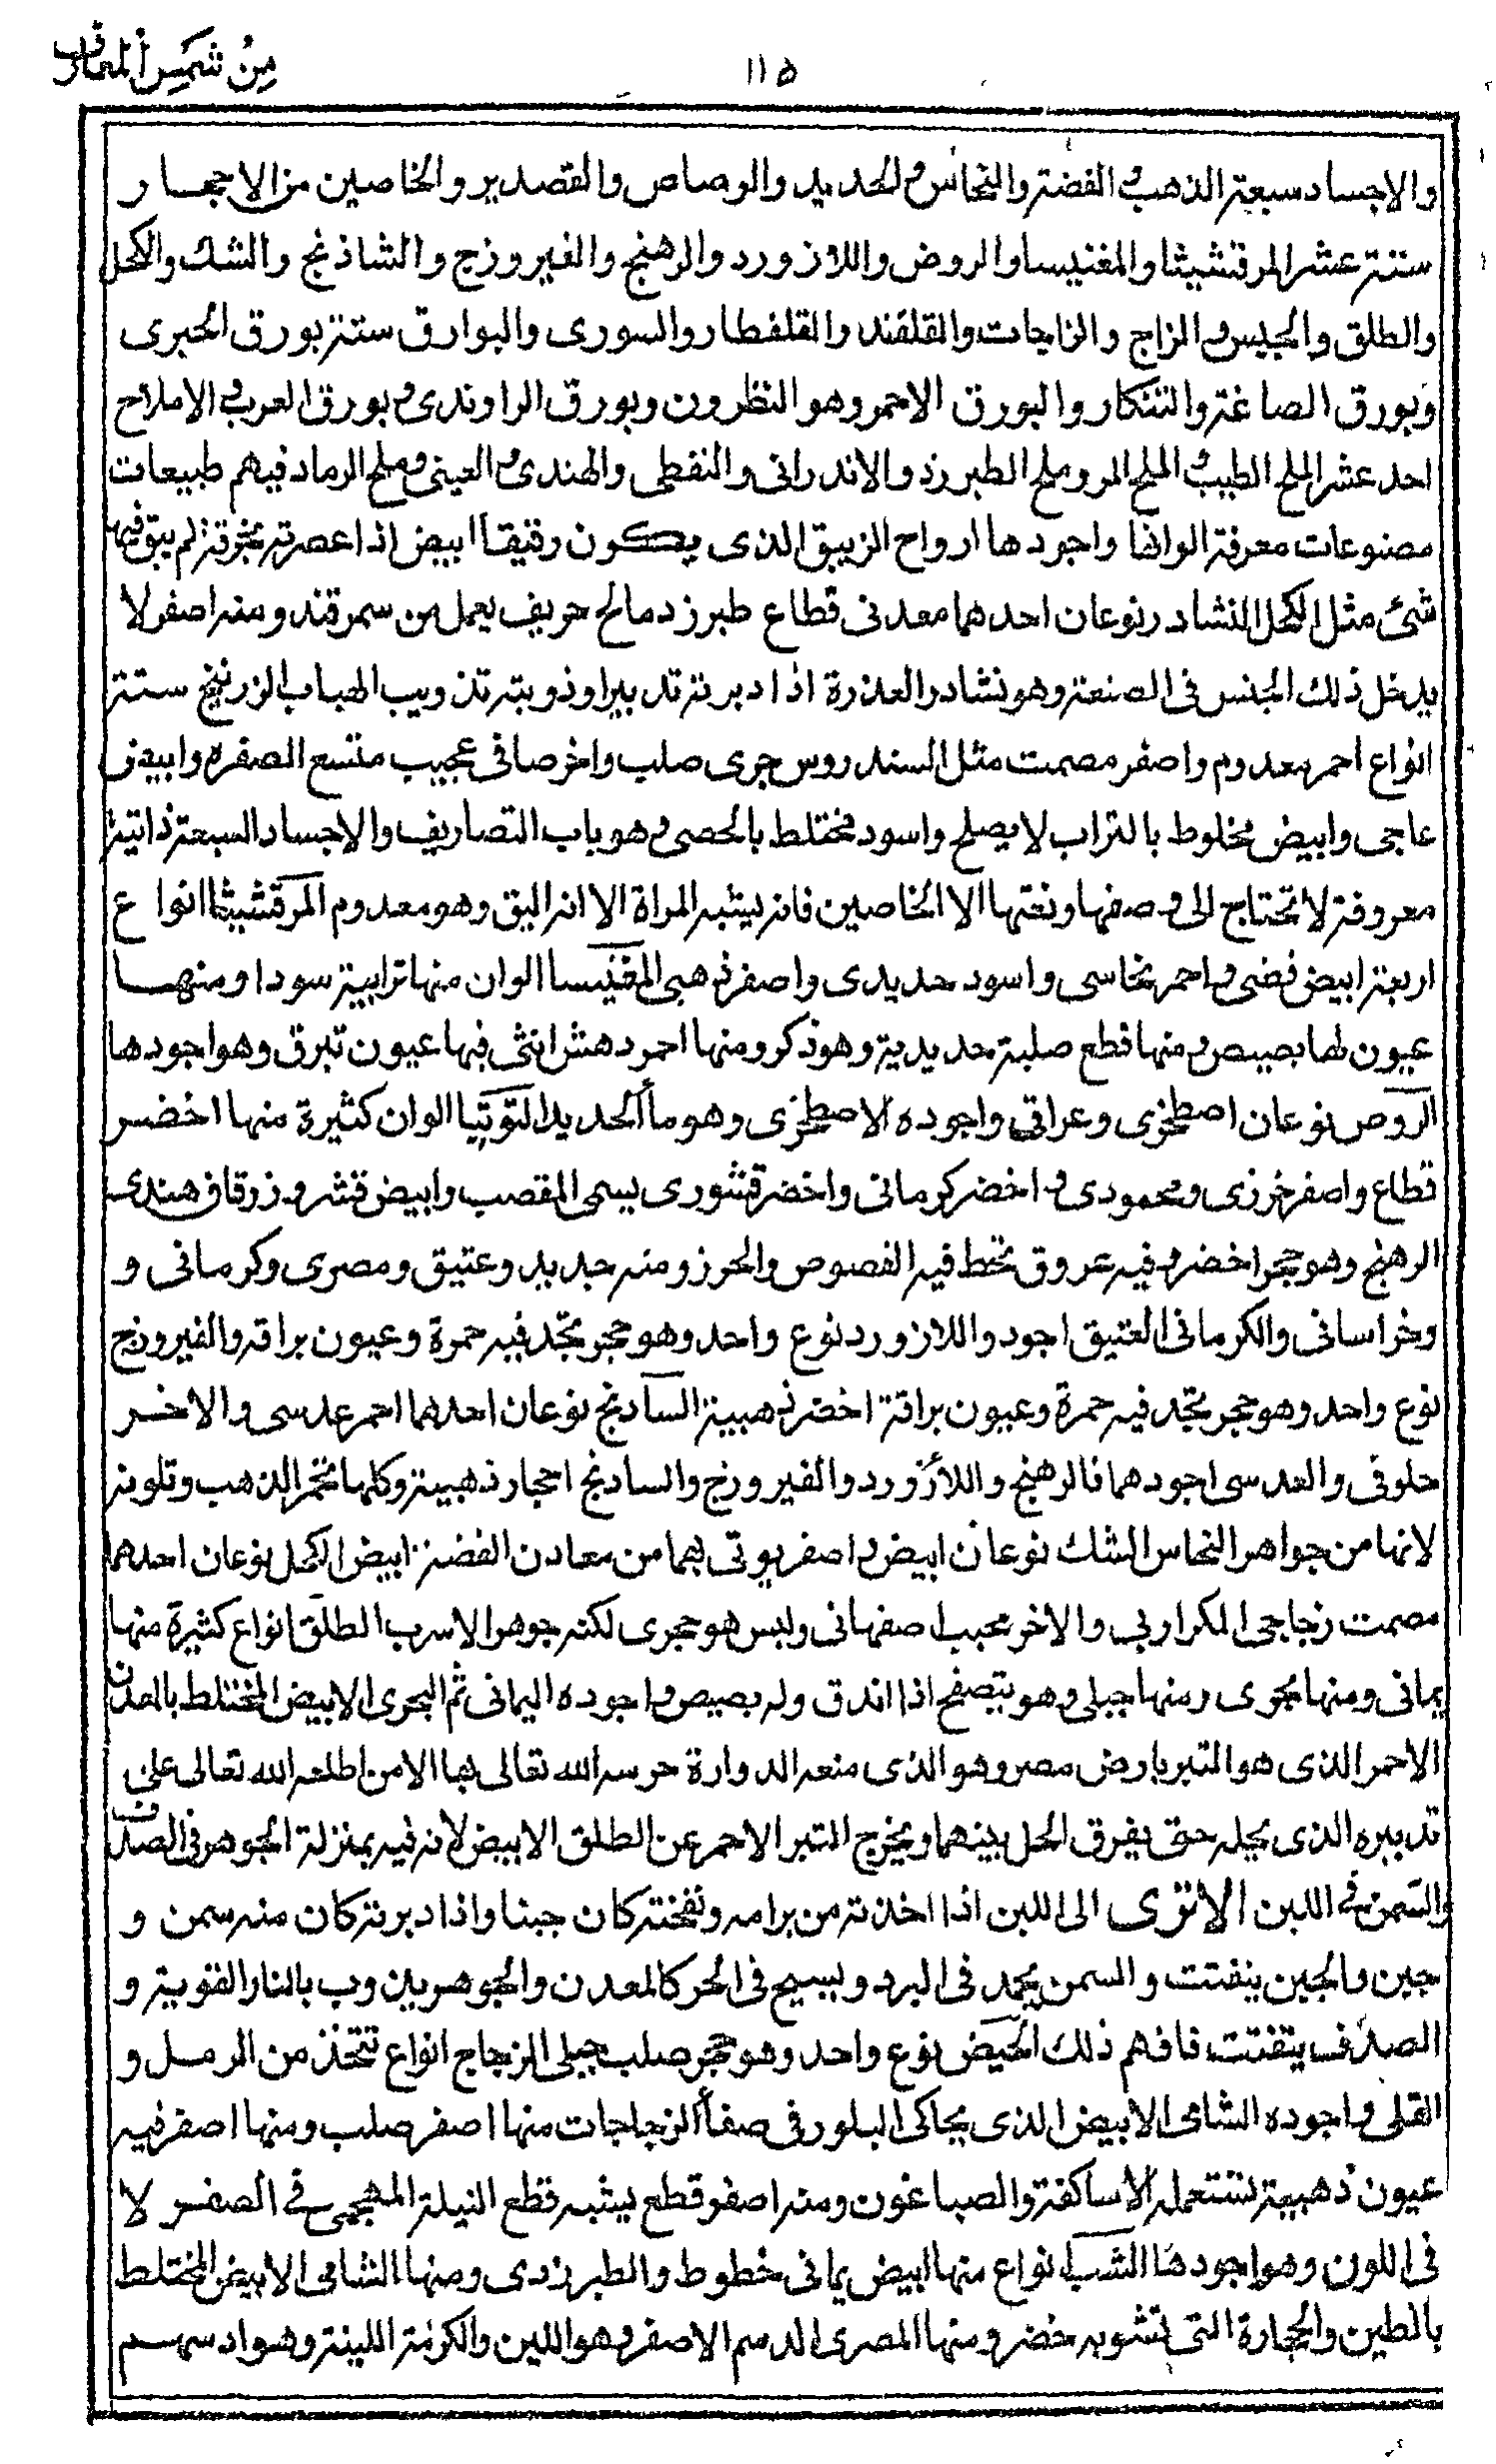 من شمس المعارف
١١٥
والاجساد سبعة الذهب والفضة والنحاس والحديد والرصاص والقصدير والخاصين من الاحجار
ستة عشر المرقشيثا والمغنيسا والروض واللازورد والرهنج والفيروزج والشاذنج والشك والكحل
والطلق والجبس والزاج والزاجات والقلقند والقلقطار والسورى والبوارق ستة بورق الخبرى
وبورق الصاغة والتنكار والبورق الاحمر وهو النظرون وبورق الراوندى وبورق العرب والاملاح
احد عشر الملح الطيب والملح المر وملح الطبرزد والاندرانى والنفطى والهندى والعينى وملح الرماد فيهم طبيعات
مصنوعات معرفة الوانها واجودها ارواح الزيبق الذى يكون رقيقا ابيض اذا عصرته بخرقة لم يبق فيها
شئ مثل الكحل النشادر نوعان احدهما معدنى قطاع طبرزد مالح حريف يعمل من سمرقند ومنه اصفر لا
يدخل ذلك الجنس فى الصنعة وهو نشادر العذرة اذا دبرته تدبيرا وذوبته تذويب الهباب الزرنيخ ستة
انواع احمر معدوم واصفر مصمت مثل السندروس جرى صلب واخر صافى عجيب متسع الصفره وابيض
عاجى وابيض مخلوط بالتراب لا يصلح واسود مختلط بالحصى وهو باب التصاريف والاجساد السبعة ذاتية
معروفة لا تحتاج الى وصفها ونعتها الا الخاصين فانه يشبه المراة الا انه اليق وهو معدوم المرقشيثا انواع
اربعة ابيض فضى واحمر نحاسى واسود حديدى واصفر ذهبى المغنيسا الوان منها ترابية سودا ومنها
عيون لها بصيص ومنها قطع صلبة حديدية وهو ذكر ومنها احمر دهش انثى فيها عيون تبرق وهو اجودها
الروص نوعان اصطخرى وعراقى واجوده الاصطخرى وهو مأ الحديد التوتيا الوان كثيرة منها اخضر
قطاع واصفر خرزى ومحمودى واخضر كرمانى واخضر قشورى يسمى المقصب وابيض قشر وزرقاف هندى
الرهنج وهو حجر اخضر وفيه عروق تخط فيه الفصوص والحرز ومنه جديد وعتيق ومصرى وكرمانى و
وخراسانى والكرمانى العتيق اجود واللازورد نوع واحد وهو حجر تجد فيه حمرة وعيون براقه والفيروزج
نوع واحد وهو حجر تجد فيه حمرة وعيون براقة اخضر ذهبية السادنج نوعان احدهما احمر عدسى والاخر
حلوقى والعدسى اجودهما فالرهنج واللازورد والفيروزج والسادنج احجار ذهبية وكلها تخمر الذهب وتلونه
لانها من جواهر النحاس الشك نوعان ابيض واصفر يوتى بهما من معادن الفضة ابيض الكحل نوعان احدهما
مصمت زجاجى المكراربى والاخر محبب اصفهانى وليس هو حجرى لكنه جوهر الاسرب الطلق انواع كثيرة منها
يمانى ومنها بحرى ومنها جبلى وهو يتصفح اذا اندق وله بصيص واجوده اليمانى ثم البحرى الابيض المختلط بالمعدن
الاحمر الذى هو التبر بارض مصر وهو الذى منعه الدوارة حرسه الله تعالى بها الا من اطلعه الله تعالى على
تدبيره الذى يحله حتى يفرق الحل بينهما ويخرج التبر الاحمر عن الطلق الابيض لانه فيه بمنزلة الجوهر فى الصدف
والسمن فى اللبن الا ترى الى اللبن اذا اخذته من برامه ونفخته كان جبنا واذا دبرته كان منه سمن و
جبن والجبن يتفتت والسمن يجمد فى البرد ويسيح فى الحر كالمعدن والجوهر يذوب بالنار القوية و
الصدف يتفتت فافهم ذلك الحيض نوع واحد وهو حجر صلب جبلى الزجاج انواع تتخذ من الرمل و
القلى واجوده الشامى الابيض الذى يحاكى البلور فى صفأ الزجاجات منها اصفر صلب ومنها اصفر فيه
عيون ذهبية تستعمله الاساكفة والصباغون ومنه اصفر قطع يشبه قطع النيلة المهجمى فى الصفر لا
فى اللون وهو اجودها الشب انواع منها ابيض يمانى خطوط والطبرزدى ومنها الشامى الابيض المختلط
بالطين والحجارة التى تشوبه خضر ومنها المصرى الدسم الاصفر وهو اللين والكرمة اللينة وهو ادسهم